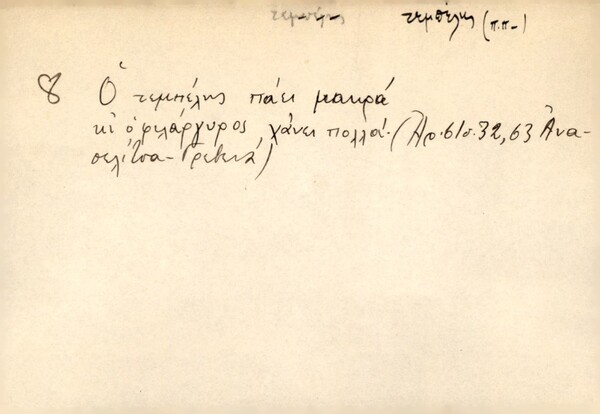 τεμπέλης τεμπέλης (π.π-)
8 Ὁ τεμπέλης πάει μακρά
κι ὁ φιλάργυρος χάνει πολλά. (Ἀρ. 61 σ. 32, 63 Ἀνα-
σελίτσα - Γρεβενά)